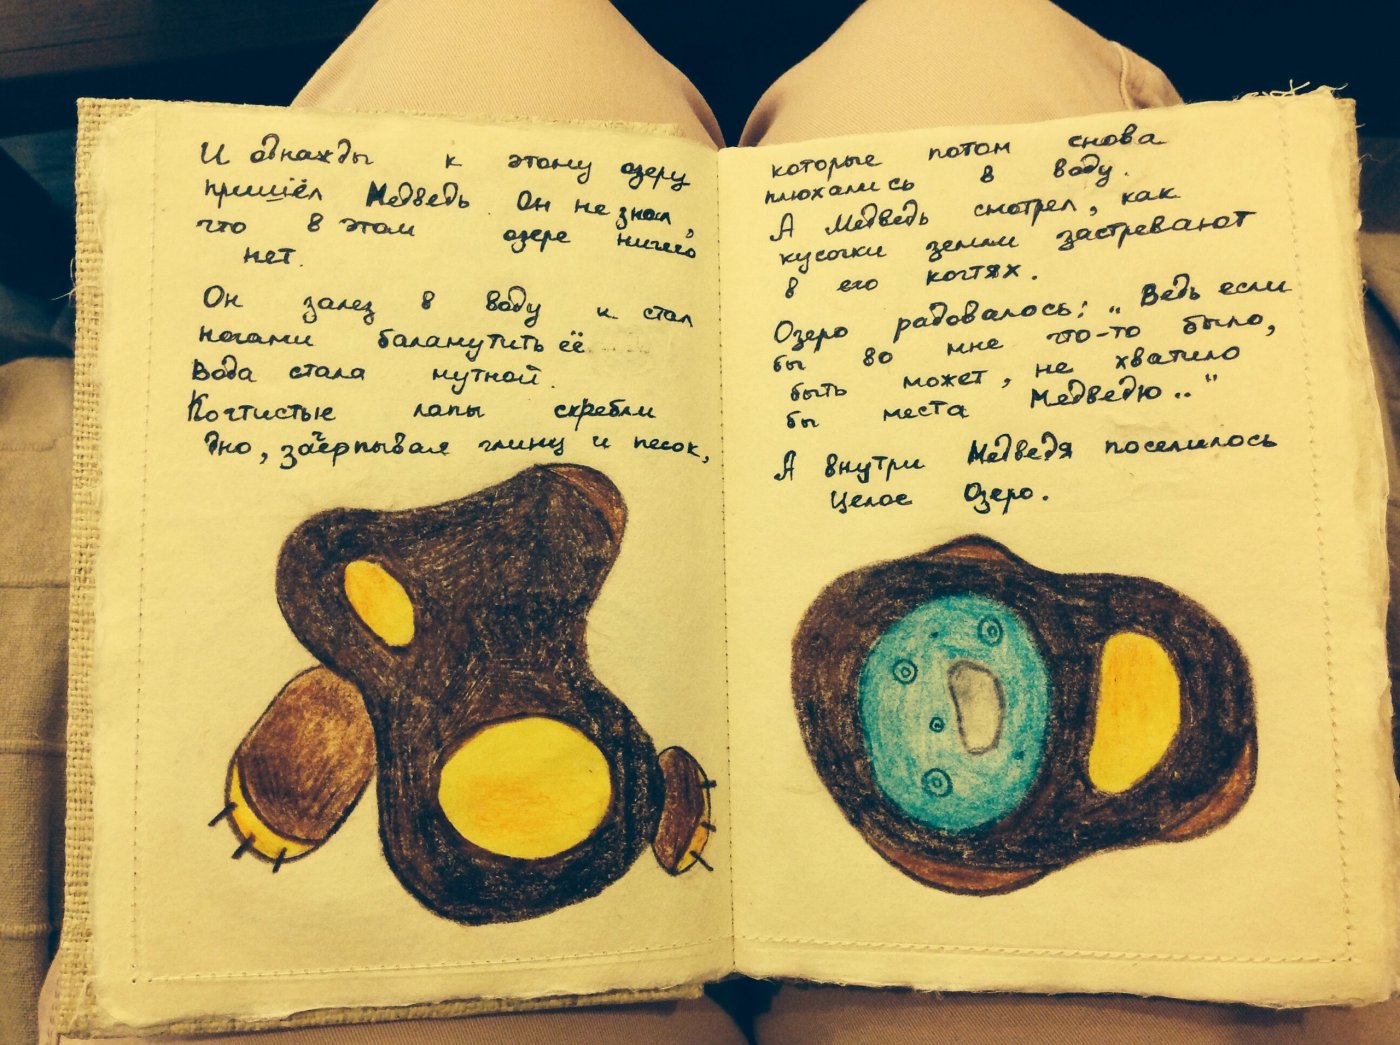 И однажды к этому озеру
пришёл Медведь. Он не знал,
что в этом озере ничего
нет.
Он залез в воду и стал
ногами баламутить её
Вода стала мутной.
Когтистые лапы скребли
дно, зачерпывая глину и песок,
которые потом снова
плюхались в воду.
А Медведь смотрел, как
кусочки земли застревают
в его когтях.
Озеро радовалось: „Ведь если
бы во мне что-то было,
быть может, не хватило
бы места Медведю.."
А внутри Медведя поселилось
целое Озеро.